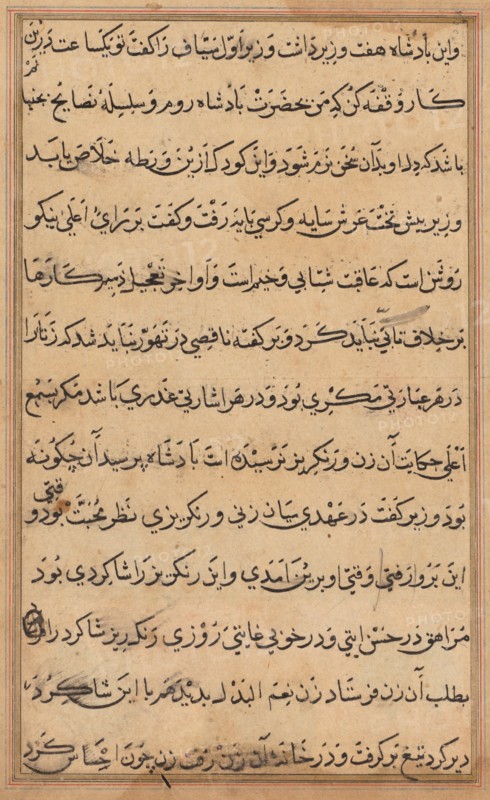 واین بادشاه هفت وزیر داشت وزیر اوّل سیّاف را کفت تو یکساعت درین
کار وقفه کن که من بحضرت بادشاه روم وسلسلهٔ نصایح بجنبا
باشد که دل او بدان سخن نرم شود واین کودک ازین ورطه خلاص یابد
وزیر پیش تخت عرش سایه وکرسی پایه رفت وکفت بر رای اعلی نیکو
روشن است که عاقبت شتابی وخیم است واواخر تعجیل ذمیم کارها
بر خلاف تأنّی نباید کرد وبر کفتهٔ ناقصی در تهوّر نباید شد که زنانرا
در هر عبارتی مکری بود ودر هر اشارتی غدری باشد مکر بسمع
اعلی حکایت آن زن ورنکریز نرسیده است بادشاه پرسید آن چکونه
بود وزیر کفت در عهدی میان زنی ورنکریزی نظر محبّت بود وقتی
این برو رفتی ووقتی او برین آمدی واین رنکریز را شاکردی بود
مراهق در حسن آیتی ودر خوبی غایتی روزی رنکریز شاکرد را
بطلب آن زن فرستاد زن نعم البدل بدید هم با این شاکرد
دیر کرد تیغ برکرفت ودر خانهٔ آن زن رفت زن چون احساس کرد